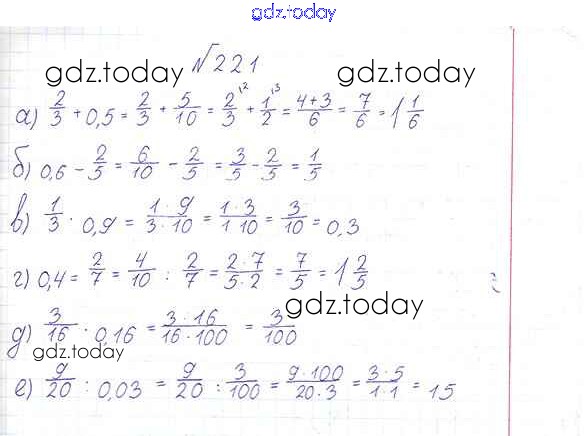 gdz.today
№221
gdz.today gdz.today
а) 2/3 + 0,5 = 2/3 + 5/10 = 2/3^2 + 1/2^3 = (4+3)/6 = 7/6 = 1 1/6
б) 0,6 - 2/5 = 6/10 - 2/5 = 3/5 - 2/5 = 1/5
в) 1/3 · 0,9 = (1·9)/(3·10) = (1·3)/(1·10) = 3/10 = 0,3
г) 0,4 = 2/7 = 4/10 : 2/7 = (2·7)/(5·2) = 7/5 = 1 2/5
gdz.today
д) 3/16 · 0,16 = (3·16)/(16·100) = 3/100
gdz.today
е) 9/20 : 0,03 = 9/20 : 3/100 = (9·100)/(20·3) = (3·5)/(1·1) = 15